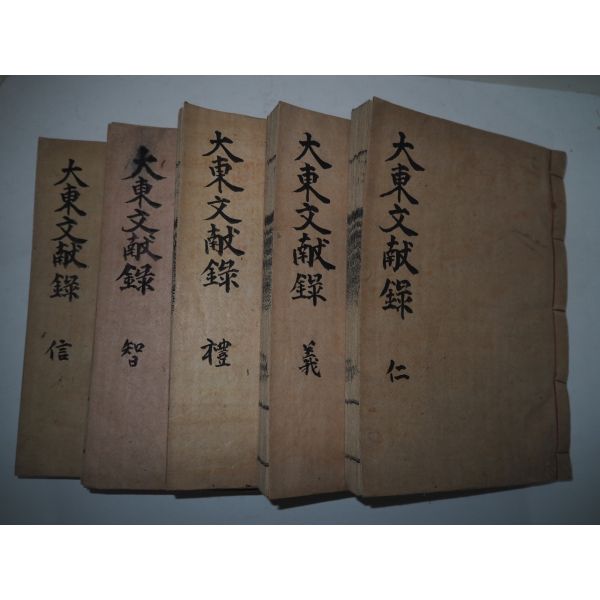 大東文献錄
仁
大東文献錄
義
大東文献錄
禮
大東文献錄
智
大東文献錄
信